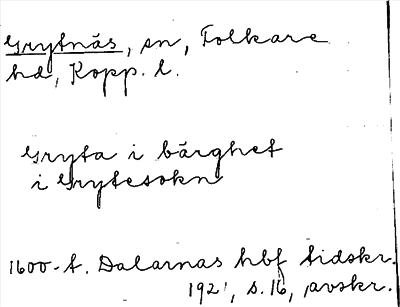 Grytnäs, sn, Folkare
hd, Kopp. l.
Gryta i bärghet
i Grytesokn
1600-t. Dalarnas hbf tidskr.
1921, s. 16, avskr.